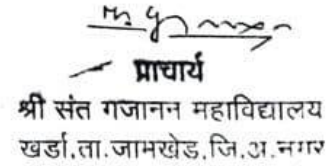 प्राचार्य
श्री संत गजानन महाविद्यालय
खर्डा.ता.जामखेड.जि.अ.नगर